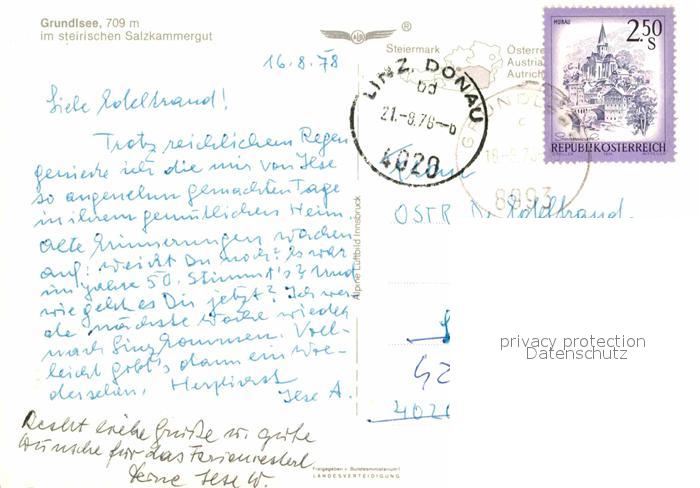 Grundlsee, 709 m
im steirischen Salzkammergut
®
Steiermark
Österre
Austria
Autrich
MURAU
2.50
S
REPUBLIK ÖSTERREICH
LINZ, DONAU
bd
21.-8.78-
4020
GRUNDL
8993
16.8.78
Liebe Edeltraud!
Trotz reichlichem Regen
genieße ich die mir von Ilse
so angenehm gemachten Tage
in ihrem gemütlichen Heim.
Alte Erinnerungen wachen
auf: weißt Du noch? Es war
im Jahre 50. Stimmt's? Und
wie geht es Dir jetzt? Ich wer-
de nächste Woche wieder
nach Linz kommen. Viel-
leicht gibt's dann ein Wie-
dersehen. Herzlichst
Ilse A.
Recht liebe Grüße u. gute
Wünsche für das Ferienresterl
Deine Ilse W.
OSTR Dr. Edeltraud
Alpine Luftbild Innsbruck
privacy protection
Datenschutz
Freigegeben v. Bundesministerium f.
LANDESVERTEIDIGUNG